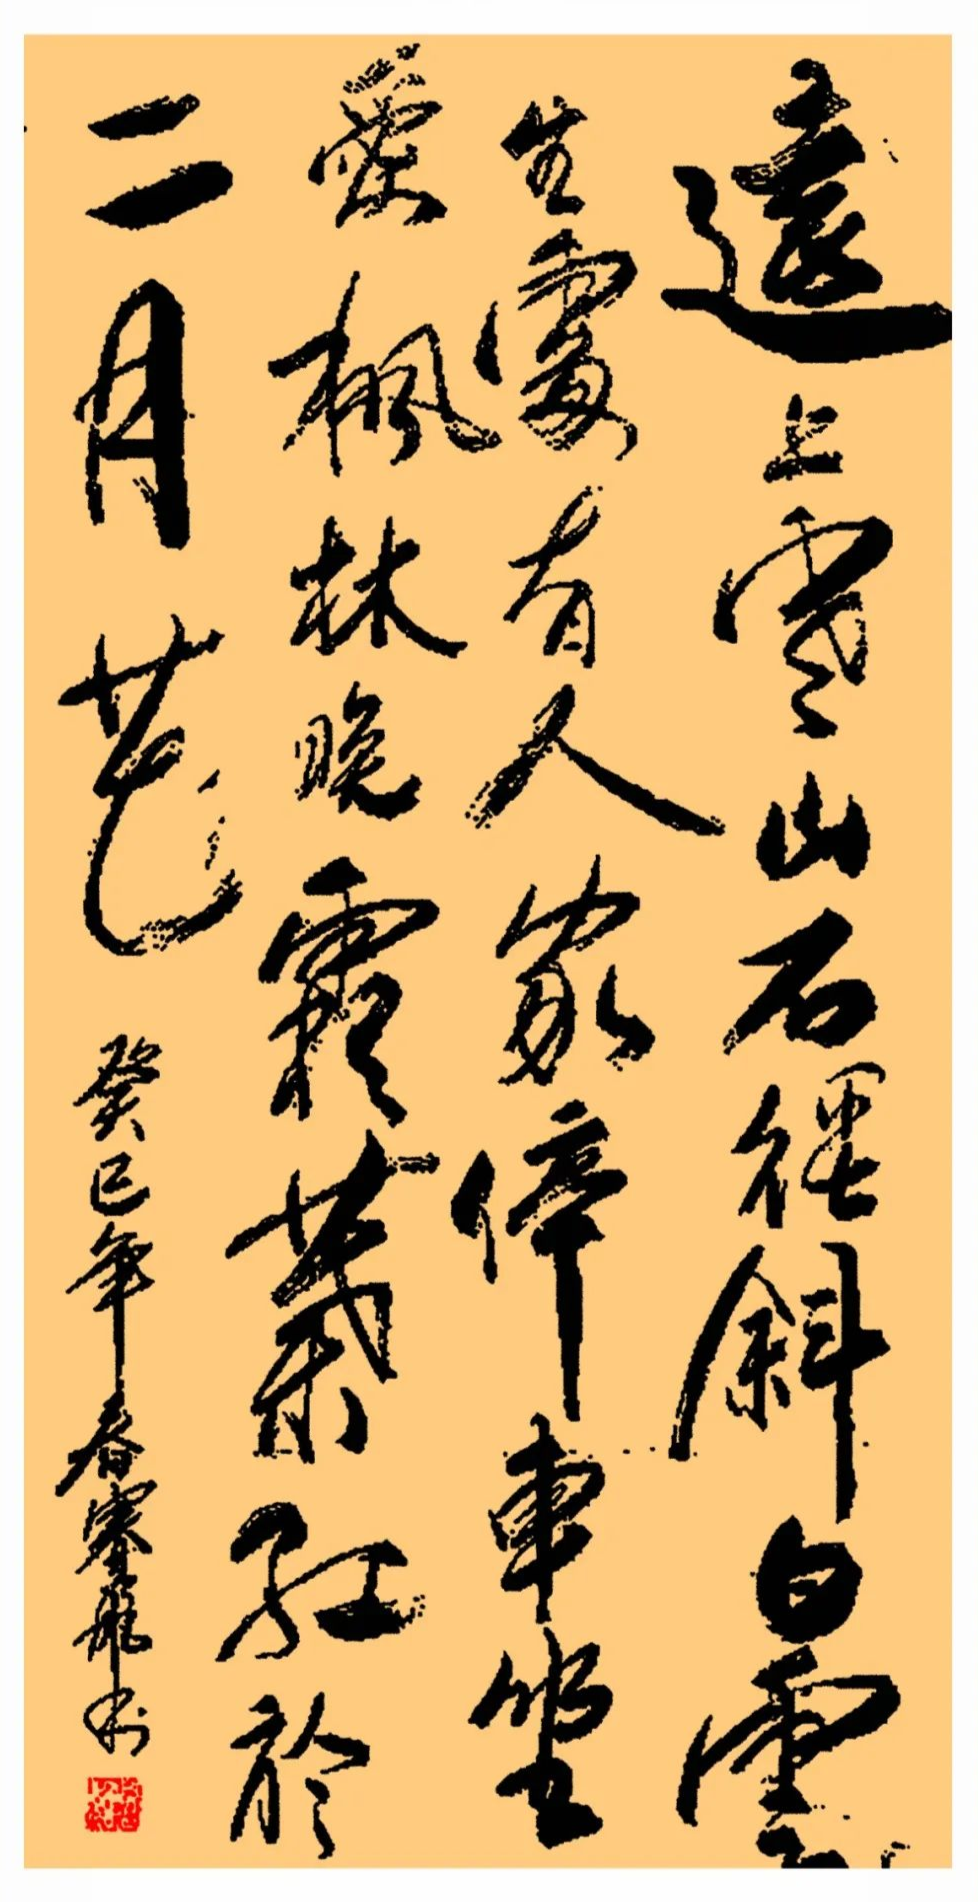 遠上寒山石徑斜白雲
生處有人家停車坐
愛楓林晚霜葉紅於
二月花 癸巳年春